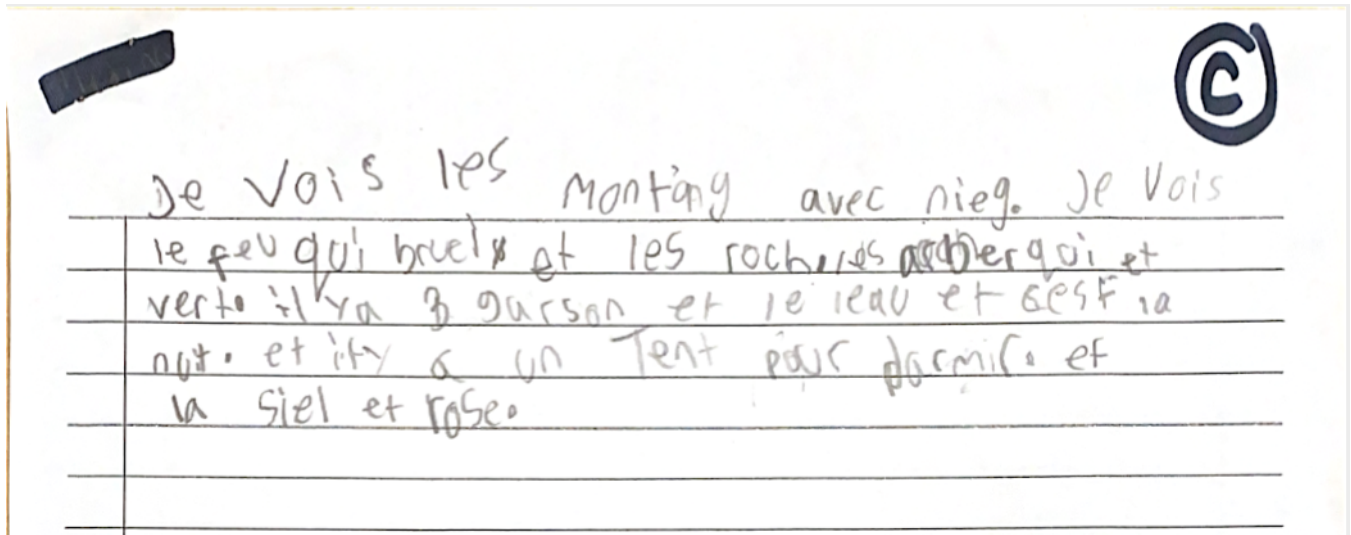 C
Je Vois les montang avec nieg. Je Vois
le feu qui bruel et les rochers arber qui et
vert. il ya 3 garson et le leau et sest la
nut. et ity a un Tent pour dormir. et
la siel et rose.